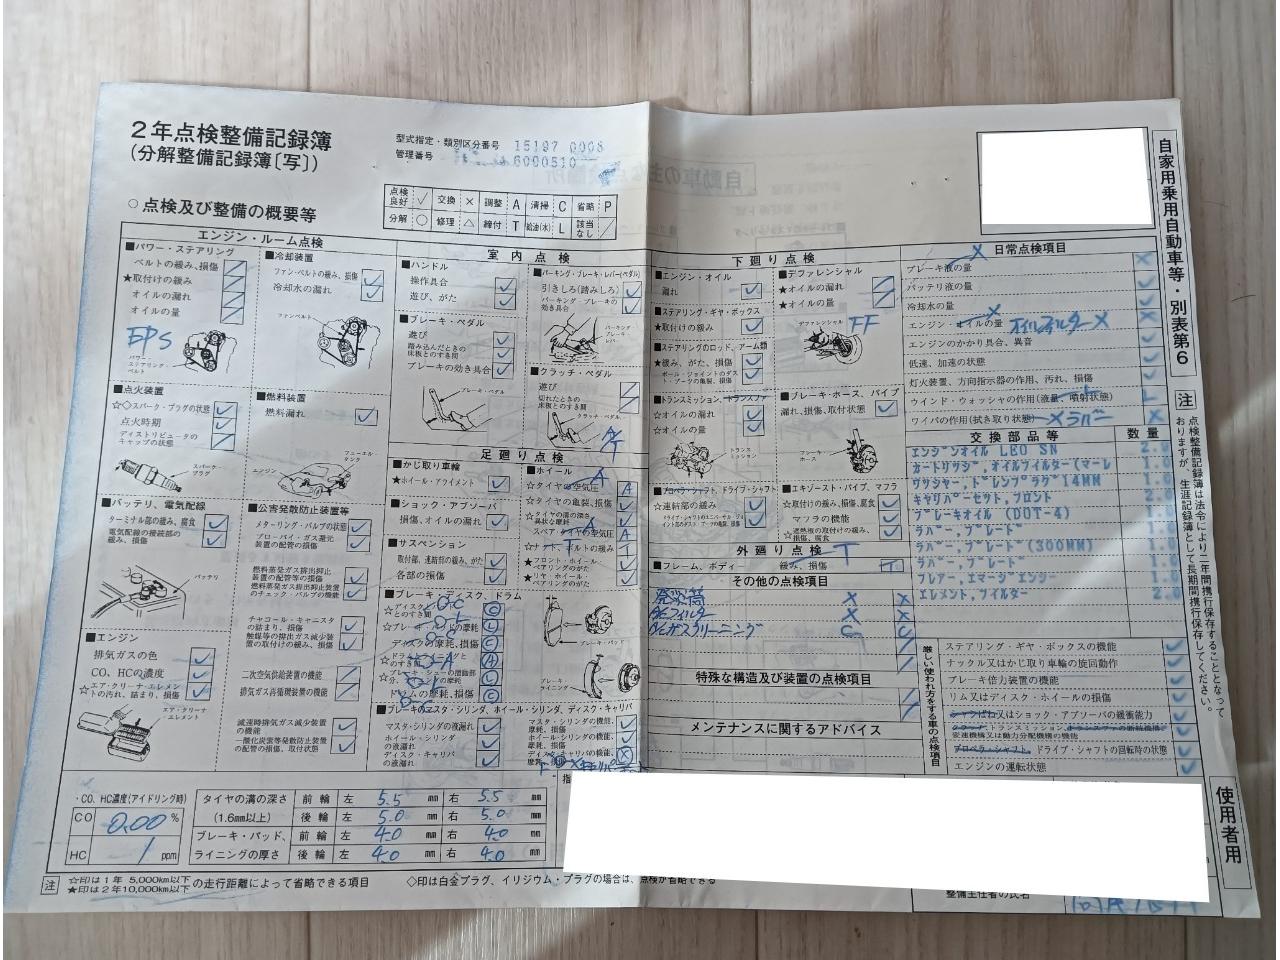 2年点検整備記録簿
(分解整備記録簿〔写〕)
型式指定・類別区分番号 15197 0008
管理番号 6090510
○ 点検及び整備の概要等
点検良好 ✓ 交換 × 調整 A 清掃 C 省略 P
分解 ○ 修理 △ 締付 T 給油(水) L 該当なし /
自家用乗用自動車等・別表第6
エンジン・ルーム点検
■パワー・ステアリング
ベルトの緩み、損傷
★取付けの緩み
オイルの漏れ
オイルの量
EPS
パワー・ステアリング・ベルト
■冷却装置
ファン・ベルトの緩み、損傷
冷却水の漏れ
ファンベルト
■点火装置
☆◇スパーク・プラグの状態
点火時期
ディストリビュータのキャップの状態
スパーク・プラグ
■燃料装置
燃料漏れ
フューエル・タンク
エンジン
■バッテリ、電気配線
ターミナル部の緩み、腐食
電気配線の接続部の緩み、損傷
バッテリ
■公害発散防止装置等
メターリング・バルブの状態
ブローバイ・ガス還元装置の配管の損傷
燃料蒸発ガス排出抑止装置の配管等の損傷
燃料蒸発ガス排出抑止装置のチェック・バルブの機能
チャコール・キャニスタの詰まり、損傷
触媒等の排出ガス減少装置の取付けの緩み、損傷
二次空気供給装置の機能
排気ガス再循環装置の機能
減速時排気ガス減少装置の機能
一酸化炭素等発散防止装置の配管の損傷、取付状態
■エンジン
排気ガスの色
CO、HCの濃度
☆エア・クリーナ・エレメントの汚れ、詰まり、損傷
エア・クリーナ・エレメント
室内点検
■ハンドル
操作具合
遊び、がた
■ブレーキ・ペダル
遊び
踏み込んだときの床板とのすき間
ブレーキの効き具合
ブレーキ・ペダル
■パーキング・ブレーキ・レバー(ペダル)
引きしろ(踏みしろ)
パーキング・ブレーキの効き具合
パーキング・ブレーキ・レバー
■クラッチ・ペダル
遊び
切れたときの床板とのすき間
クラッチ・ペダル
A/T
足廻り点検
■かじ取り車輪
★ホイール・アライメント
■ショック・アブソーバ
損傷、オイルの漏れ
■サスペンション
取付部、連結部の緩み、がた
各部の損傷
■ホイール
☆タイヤの空気圧
☆タイヤの亀裂、損傷
☆タイヤの溝の深さ 異状な摩耗
スペア・タイヤの空気圧
☆ナット、ボルトの緩み
★フロント・ホイール・ベアリングのがた
★リヤ・ホイール・ベアリングのがた
■ブレーキ・ディスク、ドラム
☆ディスクとパッドとのすき間
☆ブレーキ・パッドの摩耗
ディスクの摩耗、損傷
ドラムの摩耗、損傷
ブレーキ・パッド
ブレーキ・ライニング
■ブレーキのマスタ・シリンダ、ホイール・シリンダ、ディスク・キャリパ
マスタ・シリンダの液漏れ
ホイール・シリンダの液漏れ
ディスク・キャリパの液漏れ
マスタ・シリンダの機能、摩耗、損傷
ホイール・シリンダの機能、摩耗、損傷
ディスク・キャリパの機能、
下廻り点検
■エンジン・オイル
漏れ
■ステアリング・ギヤ・ボックス
★取付けの緩み
■ステアリングのロッド、アーム類
★緩み、がた、損傷
ボール・ジョイントのダスト・ブーツの亀裂、損傷
■トランスミッション、トランスファ
☆オイルの漏れ
☆オイルの量
トランスミッション
■プロペラ・シャフト、ドライブ・シャフト
☆連結部の緩み
■デファレンシャル
★オイルの漏れ
★オイルの量
デファレンシャル
FF
■ブレーキ・ホース、パイプ
漏れ、損傷、取付状態
ブレーキ・ホース
■エキゾースト・パイプ、マフラ
☆取付けの緩み、損傷、腐食
マフラの機能
☆遮熱板の取付けの緩み、損傷、腐食
外廻り点検
■フレーム、ボディー 緩み、損傷
その他の点検項目
発炎筒 ×
特殊な構造及び装置の点検項目
メンテナンスに関するアドバイス
日常点検項目
ブレーキ液の量
バッテリ液の量
冷却水の量
エンジン・オイルの量 オイルフィルター×
エンジンのかかり具合、異音
低速、加速の状態
灯火装置、方向指示器の作用、汚れ、損傷
ウインド・ウォッシャの作用(液量、噴射状態)
ワイパの作用(拭き取り状態) ×ラバー
交換部品等 数量
エンジンオイル LEO SN 2.0
カートリッジ,オイルフイルター(マーレ 1.0
ワッシャー,ドレンプラグ 14MM 1.0
キャリパーセット,フロント 2.0
ブレーキオイル(DOT-4) 1.0
ラバー,ブレード 1.0
ラバー,ブレード(300MM) 1.0
ラバー,ブレード 1.0
フレアー,エマージエンジー 1.0
エレメント,フイルター 2.0
厳しい使われ方をする車の点検項目
ステアリング・ギヤ・ボックスの機能
ナックル又はかじ取り車輪の旋回動作
ブレーキ倍力装置の機能
リム又はディスク・ホイールの損傷
シャシばね又はショック・アブソーバの緩衝能力
変速機構又は動力分配機構の機能
プロペラ・シャフト、ドライブ・シャフトの回転時の状態
エンジンの運転状態
注 点検整備記録簿は法令により二年間携行保存することとなっておりますが、生涯記録簿として長期間携行保存してください。
使用者用
・CO、HC濃度(アイドリング時)
CO 0.00 %
HC 1 ppm
タイヤの溝の深さ (1.6mm以上) 前輪 左 5.5 mm 右 5.5 mm
後輪 左 5.0 mm 右 5.0 mm
ブレーキ・パッド、ライニングの厚さ 前輪 左 4.0 mm 右 4.0 mm
後輪 左 4.0 mm 右 4.0 mm
注 ☆印は1年 5,000km以下 ★印は2年10,000km以下 の走行距離によって省略できる項目 ◇印は白金プラグ、イリジウム・プラグの場合は、点検が省略できる
整備主任者の氏名